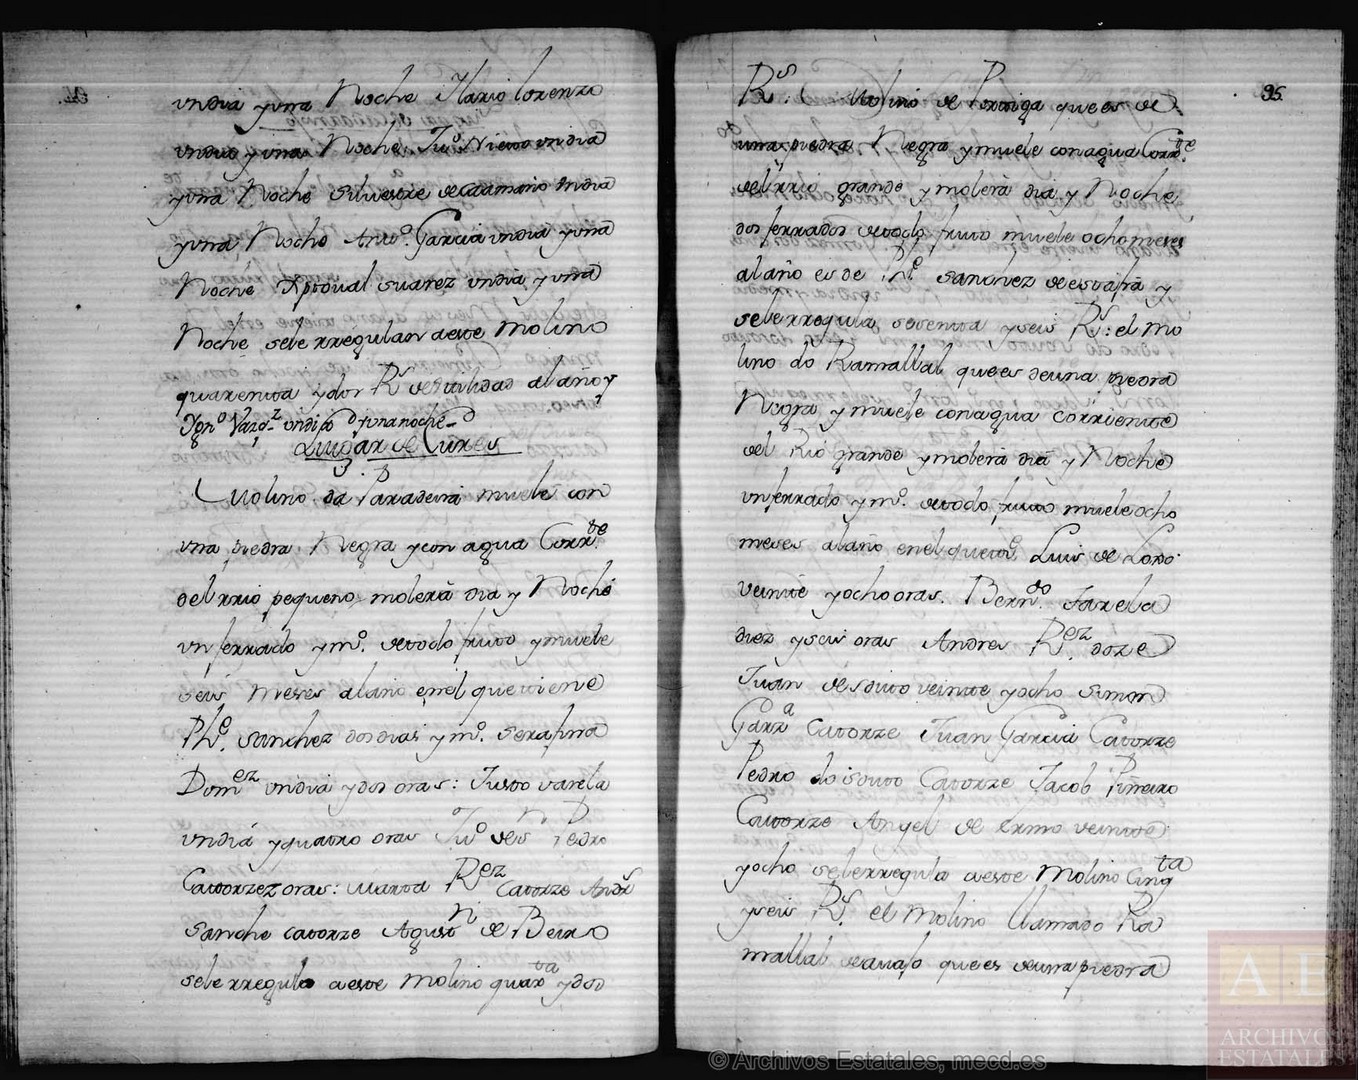 undia y una Noche Ilario Lorenzo
undia y una Noche Juº. Nieto undia
y una Noche Silvestre de Caamaño undia
y una Noche Antº. Garcia undia y una
Noche Xptoval Suarez undia y una
Noche sele rregulan aeste Molino
quarenta y dos Rs de utilidad al año y
Ygnº Vazqz undia y una noche
Lugar de Cures
Molino da Paradeira muele con
una piedra Negra y con agua Corrte.
del rrio pequeno molera dia y Noche
un ferrado y mº. de todo fruto y muele
seis meses al año en el que tiene
Phe. Sanchez dos dias y mº. Serafina
Domez undia y dos oras: Justo Varela
undia y quatro oras Juº de Pedro
Catorze oras: Marta Rez Catorze Andrs
Sanche catorze Agustn de Beiro
sele rregula aeste Molino quarta y dos
95.
Rs: Molino de Portiga que es de
una piedra Negra y muele con agua Corrte.
del rrio grande y molera dia y Noche
dos ferrados de todo fruto muele ocho meses
al año es de Phe Sanchez de esta fra y
sele rregula setenta y seis Rs: el Mo
lino do Ramallal que es de una piedra
Negra y muele con agua corriente
del Rio grande y molera dia y Noche
un ferrado y mº. de todo fruto muele ocho
meses al año en el que tne Luis de
veinte y ocho oras. Berndo. Varela
diez y seis oras Andres Rez. doze
Juan de souto veinte y ocho Simon
Garza Catorze Juan Garcia Catorze
Pedro do Souto Catorze Jacob Piñeiro
Catorze Angel de ermo veinte
y ocho sele rregula aeste Molino Cinqta
y seis Rs. el Molino llamado Ra
mallal de avajo que es de una piedra
© Archivos Estatales, mecd.es
AE
ARCHIVOS
ESTATALES